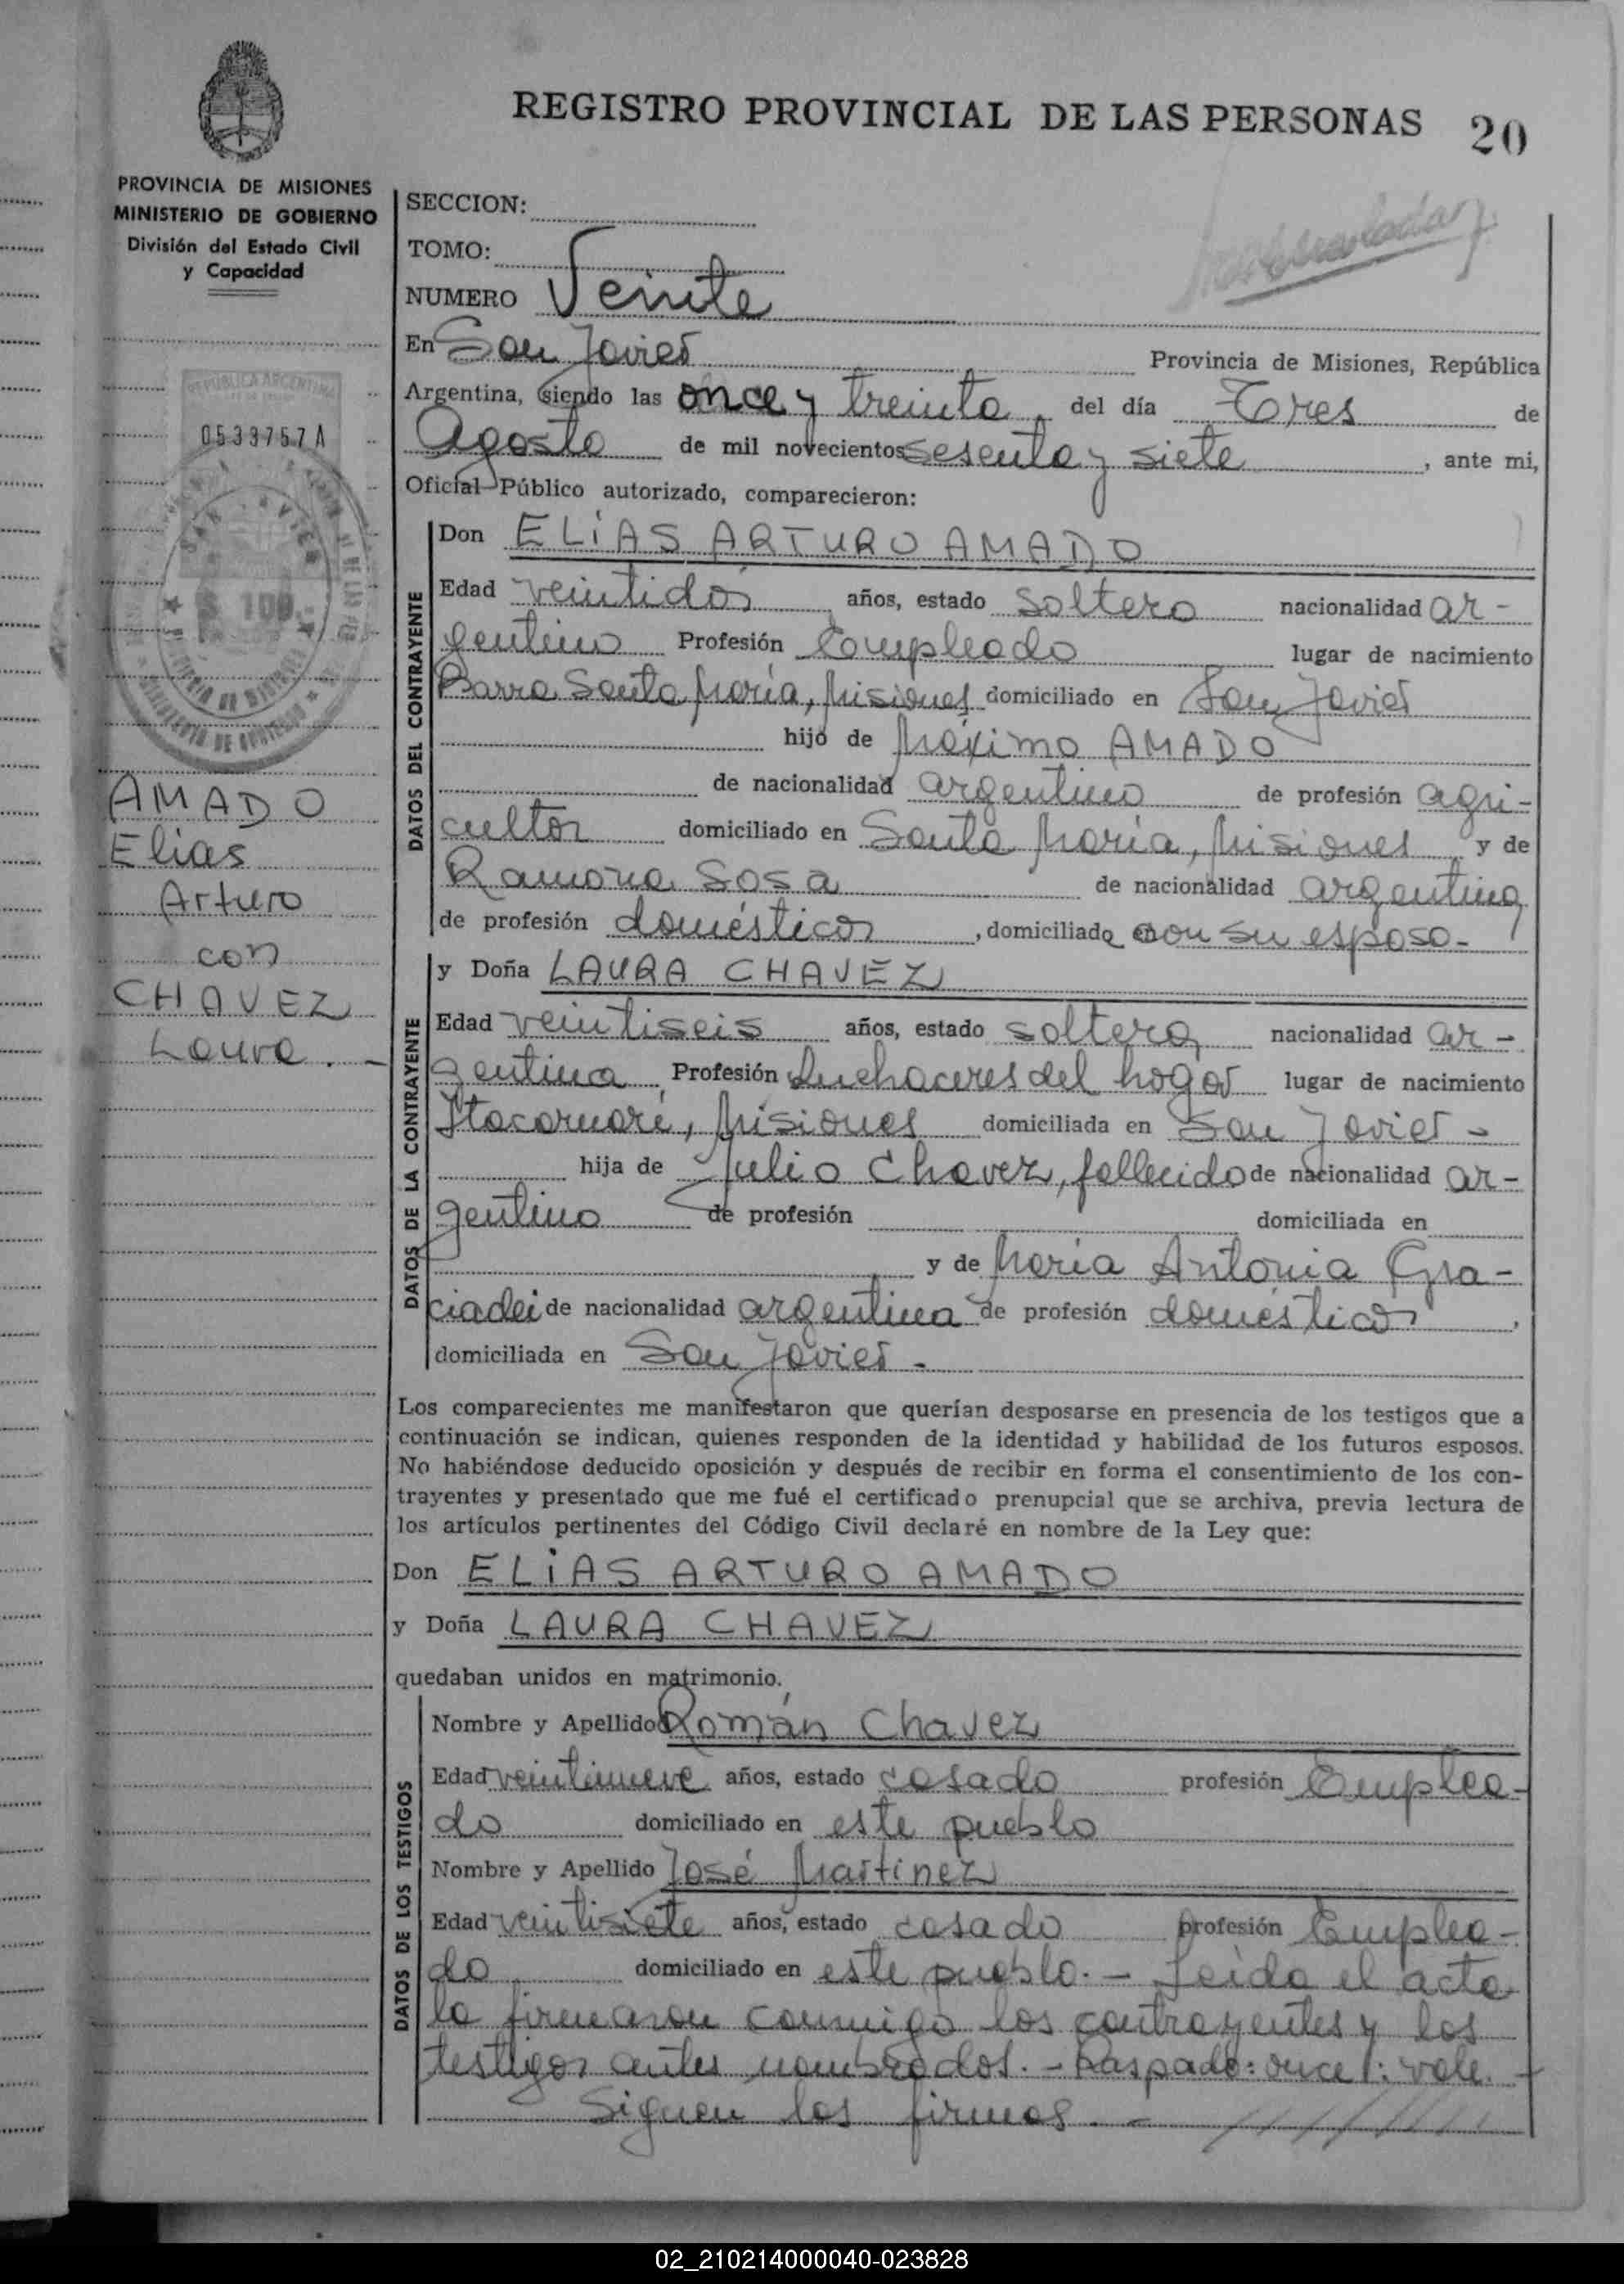 REGISTRO PROVINCIAL DE LAS PERSONAS 20
PROVINCIA DE MISIONES
MINISTERIO DE GOBIERNO
División del Estado Civil
y Capacidad
REPUBLICA ARGENTINA
0539757 A
$ 100
AMADO
Elias
Arturo
con
CHAVEZ
Laura. -
SECCION:
TOMO:
NUMERO Veinte
En San Javier Provincia de Misiones, República
Argentina, siendo las once y treinta del día Tres de
Agosto de mil novecientos sesenta y siete, ante mi,
Oficial Público autorizado, comparecieron:
DATOS DEL CONTRAYENTE
Don ELÍAS ARTURO AMADO
Edad veintidós años, estado soltero nacionalidad ar-
gentino Profesión Empleado lugar de nacimiento
Barra Santa María, Misiones domiciliado en San Javier
hijo de Máximo AMADO
de nacionalidad argentino de profesión agri-
cultor domiciliado en Santa María, Misiones y de
Ramona Sosa de nacionalidad argentina
de profesión domésticos, domiciliado con su esposo-
DATOS DE LA CONTRAYENTE
y Doña LAURA CHAVEZ
Edad veintiseis años, estado soltera nacionalidad ar-
gentina Profesión Quehaceres del hogar lugar de nacimiento
Itacaruaré, Misiones domiciliada en San Javier -
hija de Julio Chavez, fallecido de nacionalidad ar-
gentino de profesión domiciliada en
y de María Antonia Gra-
ciadei de nacionalidad argentina de profesión domésticos,
domiciliada en San Javier -
Los comparecientes me manifestaron que querían desposarse en presencia de los testigos que a
continuación se indican, quienes responden de la identidad y habilidad de los futuros esposos.
No habiéndose deducido oposición y después de recibir en forma el consentimiento de los con-
trayentes y presentado que me fué el certificado prenupcial que se archiva, previa lectura de
los artículos pertinentes del Código Civil declaré en nombre de la Ley que:
Don ELÍAS ARTURO AMADO
y Doña LAURA CHAVEZ
quedaban unidos en matrimonio.
DATOS DE LOS TESTIGOS
Nombre y Apellido Román Chavez
Edad veintinueve años, estado casado profesión Emplea-
do domiciliado en este pueblo
Nombre y Apellido José Martinez
Edad veintisiete años, estado casado profesión Emplea-
do domiciliado en este pueblo. - Leída el acta
la firmaron conmigo los contrayentes y los
testigos antes nombrados. - Raspado: once /: vale. -
Siguen las firmas. -
02_210214000040-023828